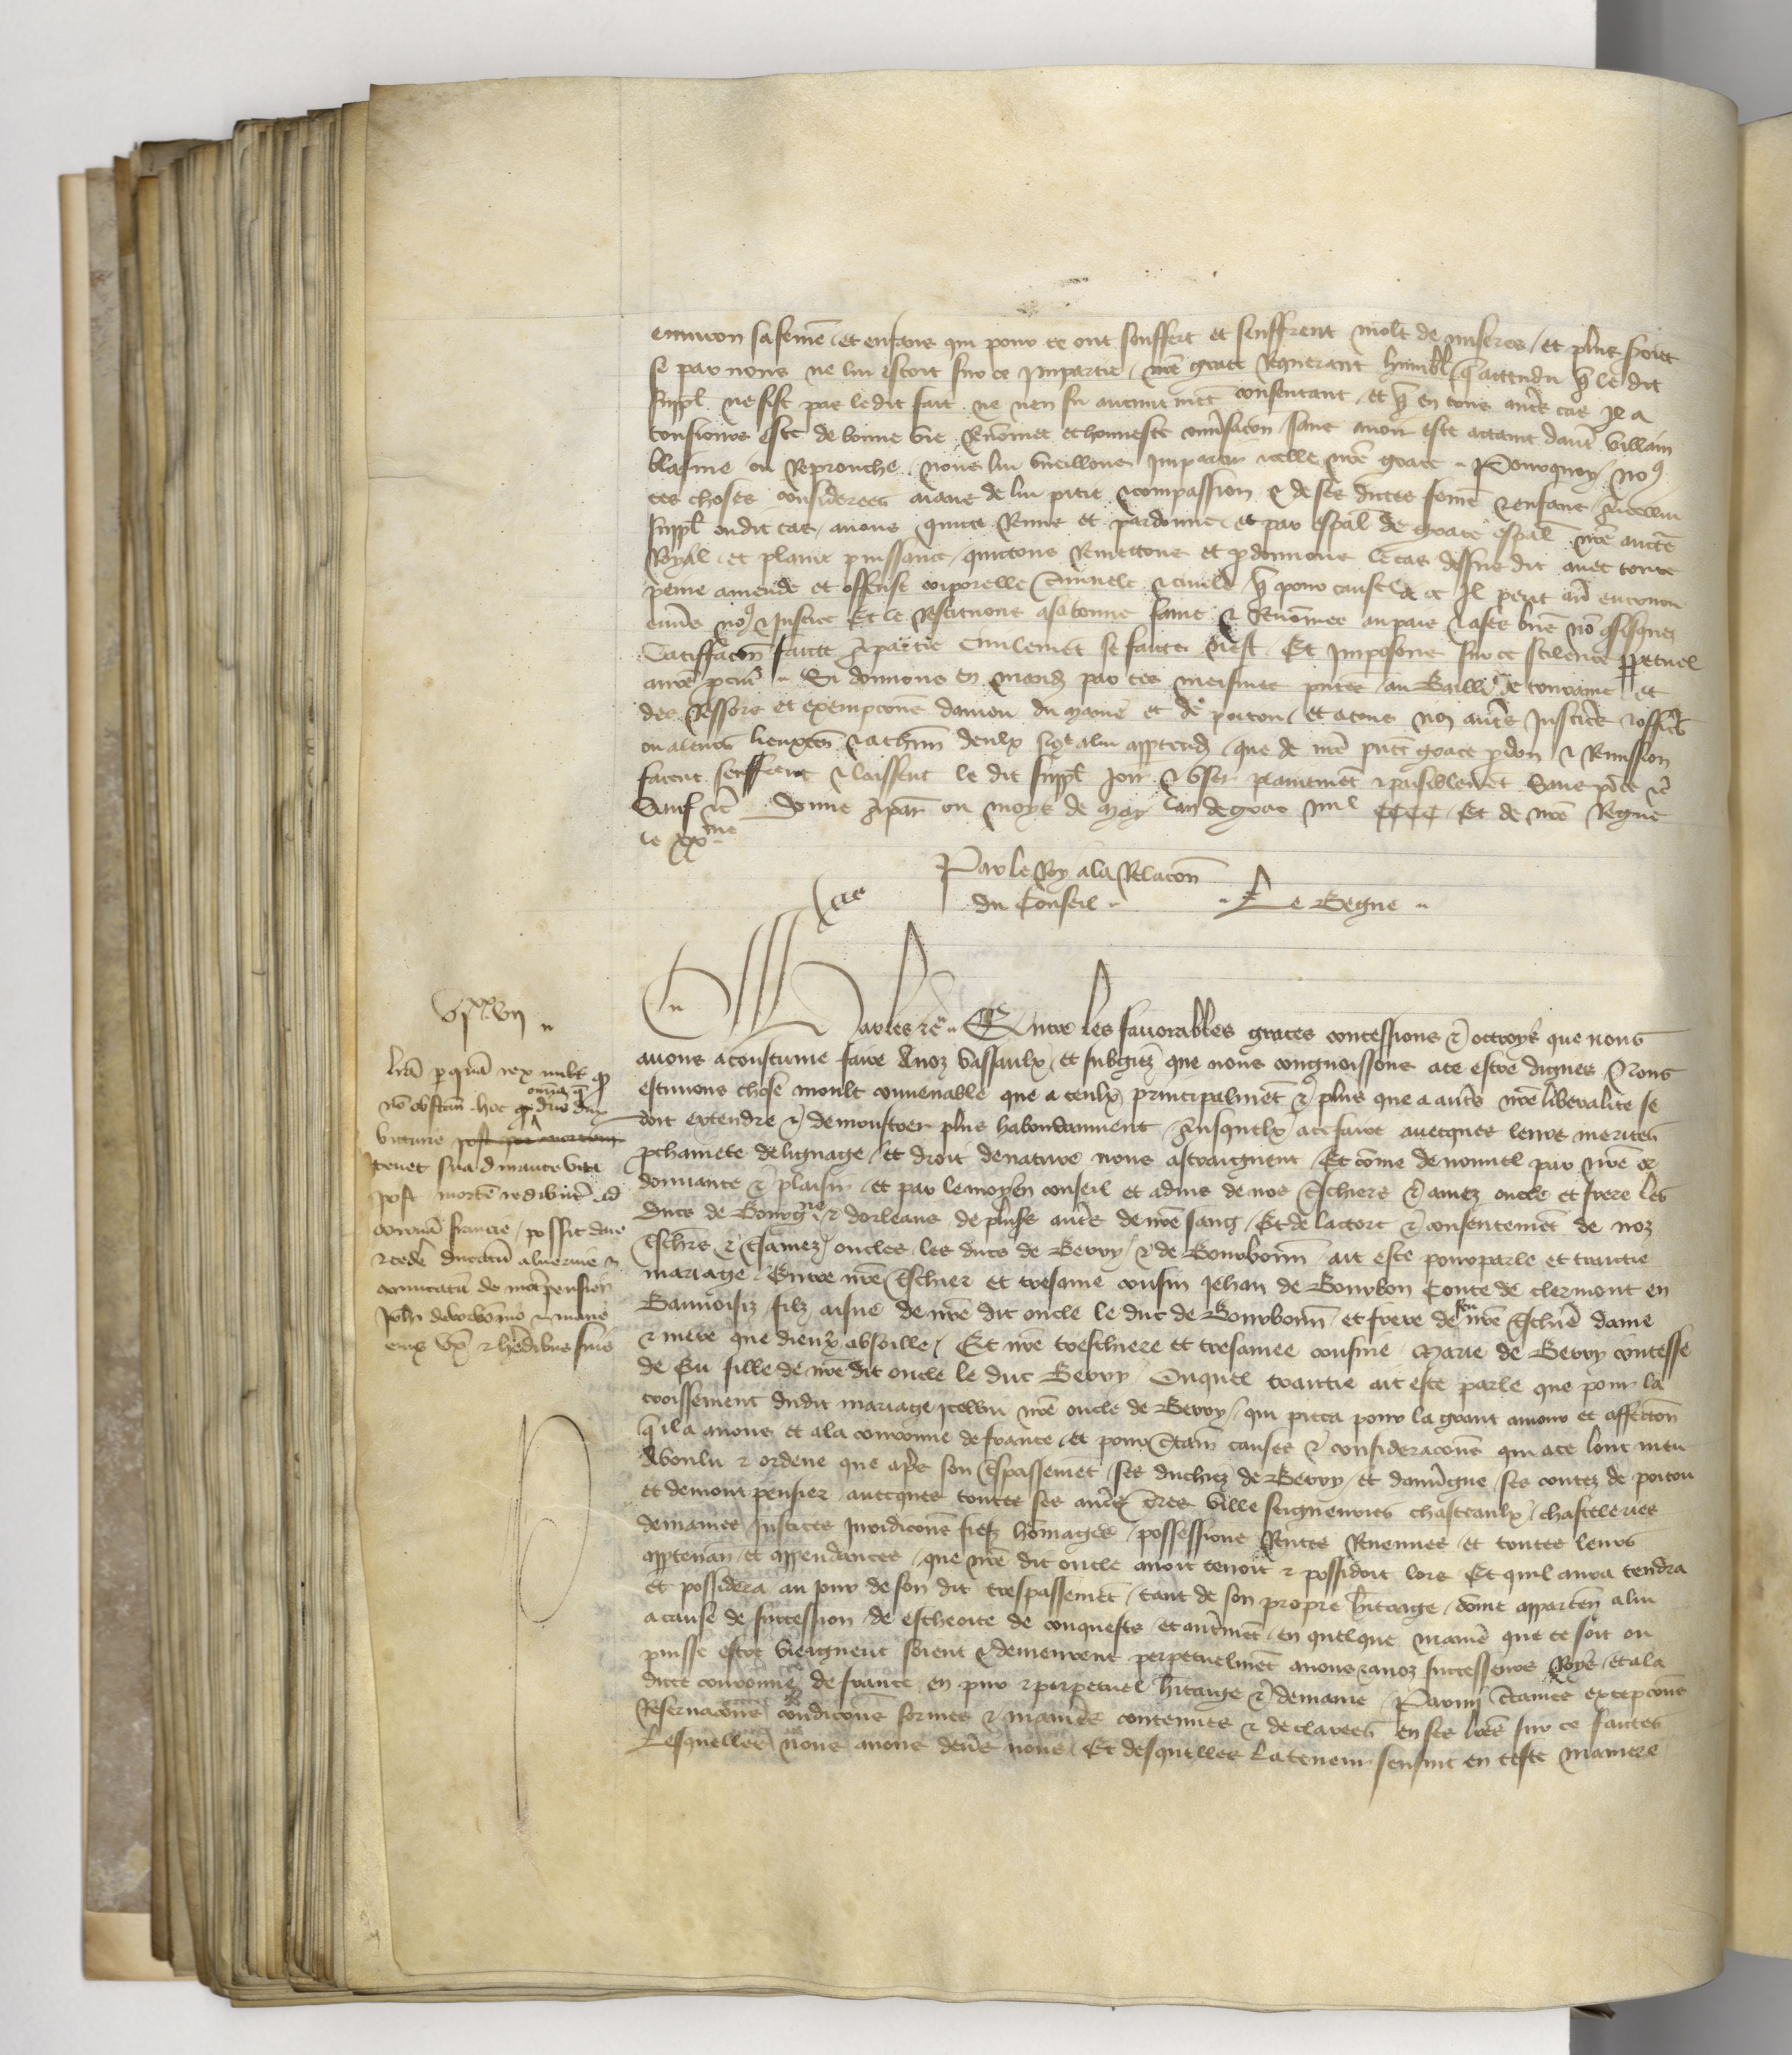 environ sa feme et enfans qui pour ce ont souffert et seuffrent molt de miseres et plus
se par nous ne lui estoit sur ce impartie nre grace requerant humbl que attendu que le dit
suppl ne fist pas le dit fait ne nen fu aucunement consentant et que en tous autres cas Il a
tousiours este de bonne vie renomee et honneste conversacon sans avoir este actaint dautre villain
blasme ou reprouche nous lui vueillons impartir icelle nre grace Pourquoy nous
ces choses considerees aians de lui pitie et compassion et de ses dictes feme et enfans a icellui
suppl ou dit cas avons quicte remis et pardonne et par espal de grace espal nre aucte
Royal et plaine puissance quictons remettons et pdonnons le cas dessus dit avec toute
peine amende et offense corporelle criminele et civile que pour cause de ce Il peut avoir encouru
envers nous et Justice Et le restituons a sa bonne fame et renomee au pais et a ses biens non confisquez
Satisfacon faicte a partie civilement se faicte nest Et imposons sur ce scilence ppetuel
a nre pcur Si donnons en mand par ces meismes pntes au Bailli de touraine et
des ressors et exempcons danjou du maine et de poitou et a tous noz autres Justiciers et officiers
ou a leurs lieuxten et a chun deulx si come a lui apptendr que de nre pnte grace pdon et remission
facent seuffrent et laissent le dit suppl joir et user plainement et paisiblement Sans
Sauf etc Donne a paris ou moys de may lan de grace mil CCCC Et de nre Regne
le xxme
Par le Roy a la Relacon
du Conseil Le Begue
Charles etc Entre les favorables graces concessions et octroys que nous
avons acoustume faire a noz vassaulx et subgiez que nous congnoissons a ce estre dignes Nous
estimons chose moult convenable que a ceulx principalment et plus que a autres nre liberalite se
doit extendre et demonstrer plus habondamment ausquelx a ce faire avecques leurs merites
pchainete de lignage et droit de nature nous astraignent Et come de nouvel par nre or
donnance et plaisir et par le moyen conseil et advis de nos tschiers et amez oncle et frere les
Ducs de Bourgne et dorleans de pluss autres de nre sang Et de lactort et consentement de noz
tschrs et tsamez oncles les ducs de Berry et de Bourbonn ait este pourparle et traictie
mariage Entre nre tschier et tresame cousin Jehan de Bourbon Conte de clermont en
Bauvoisiz filz aisne de nre dit oncle le duc de Bourbonn et frere de feu nre tschre dame
et mere que dieux absoille Et nre treschiere et tresamee cousine Marie de Berry contesse
de Eu fille de nre dit oncle le duc Berry Ouquel traictie ait este parle que pour la
croissement dudit mariage Icellui nre oncle de Berry qui pieca pour la grant amour et affection
quil a a nous et a la couronne de france et pour ctain causes et consideracons qui a ce lont meu
A voulu et ordene que apres son tspassement ses duchiez de Berry et dauvgne ses contez de poitou
et de montpensier avecques toutes ses autres tres ville seigneuries chasteaulx chasteleries
demaines Justices juridicons fiefz homages possessions Rentes Revenues et toutes leurs
apptenan et appendances que nre dit oncle avoit tenoit et possidoit lors Et quil aura tendra
et possidera au jour de son dit trespassement tant de son propre hitaige comt appartenn a lui
a cause de succession de escheoite de conqueste et autrement en quelque maniere que ce soit ou
puisse estre viengnent soient et demeurent perpetuelment a nous et a noz successeurs Roys et a la
dicte couronne de france en pur et perpetuel hitaige et demaine Parmi ctaines excepcons
Reservacons condicons formes et manieres contenues et declarees en ses lres sur ce faictes
Lesquelles nous avons devers nous Et desquelles la teneur sensuit en ceste maniere
Vixx vii
lra p quam rex vult qd
no obstan hoc qd omia que dns dux
biturie post ipsi mortem
tenet sua durante vita
post morte redibunt ad
coronam francie possit dare
et cedere ducatu alvernie et
comitatu de montpensier
Johi de borbonio et marie
eius ux et heredibus suis